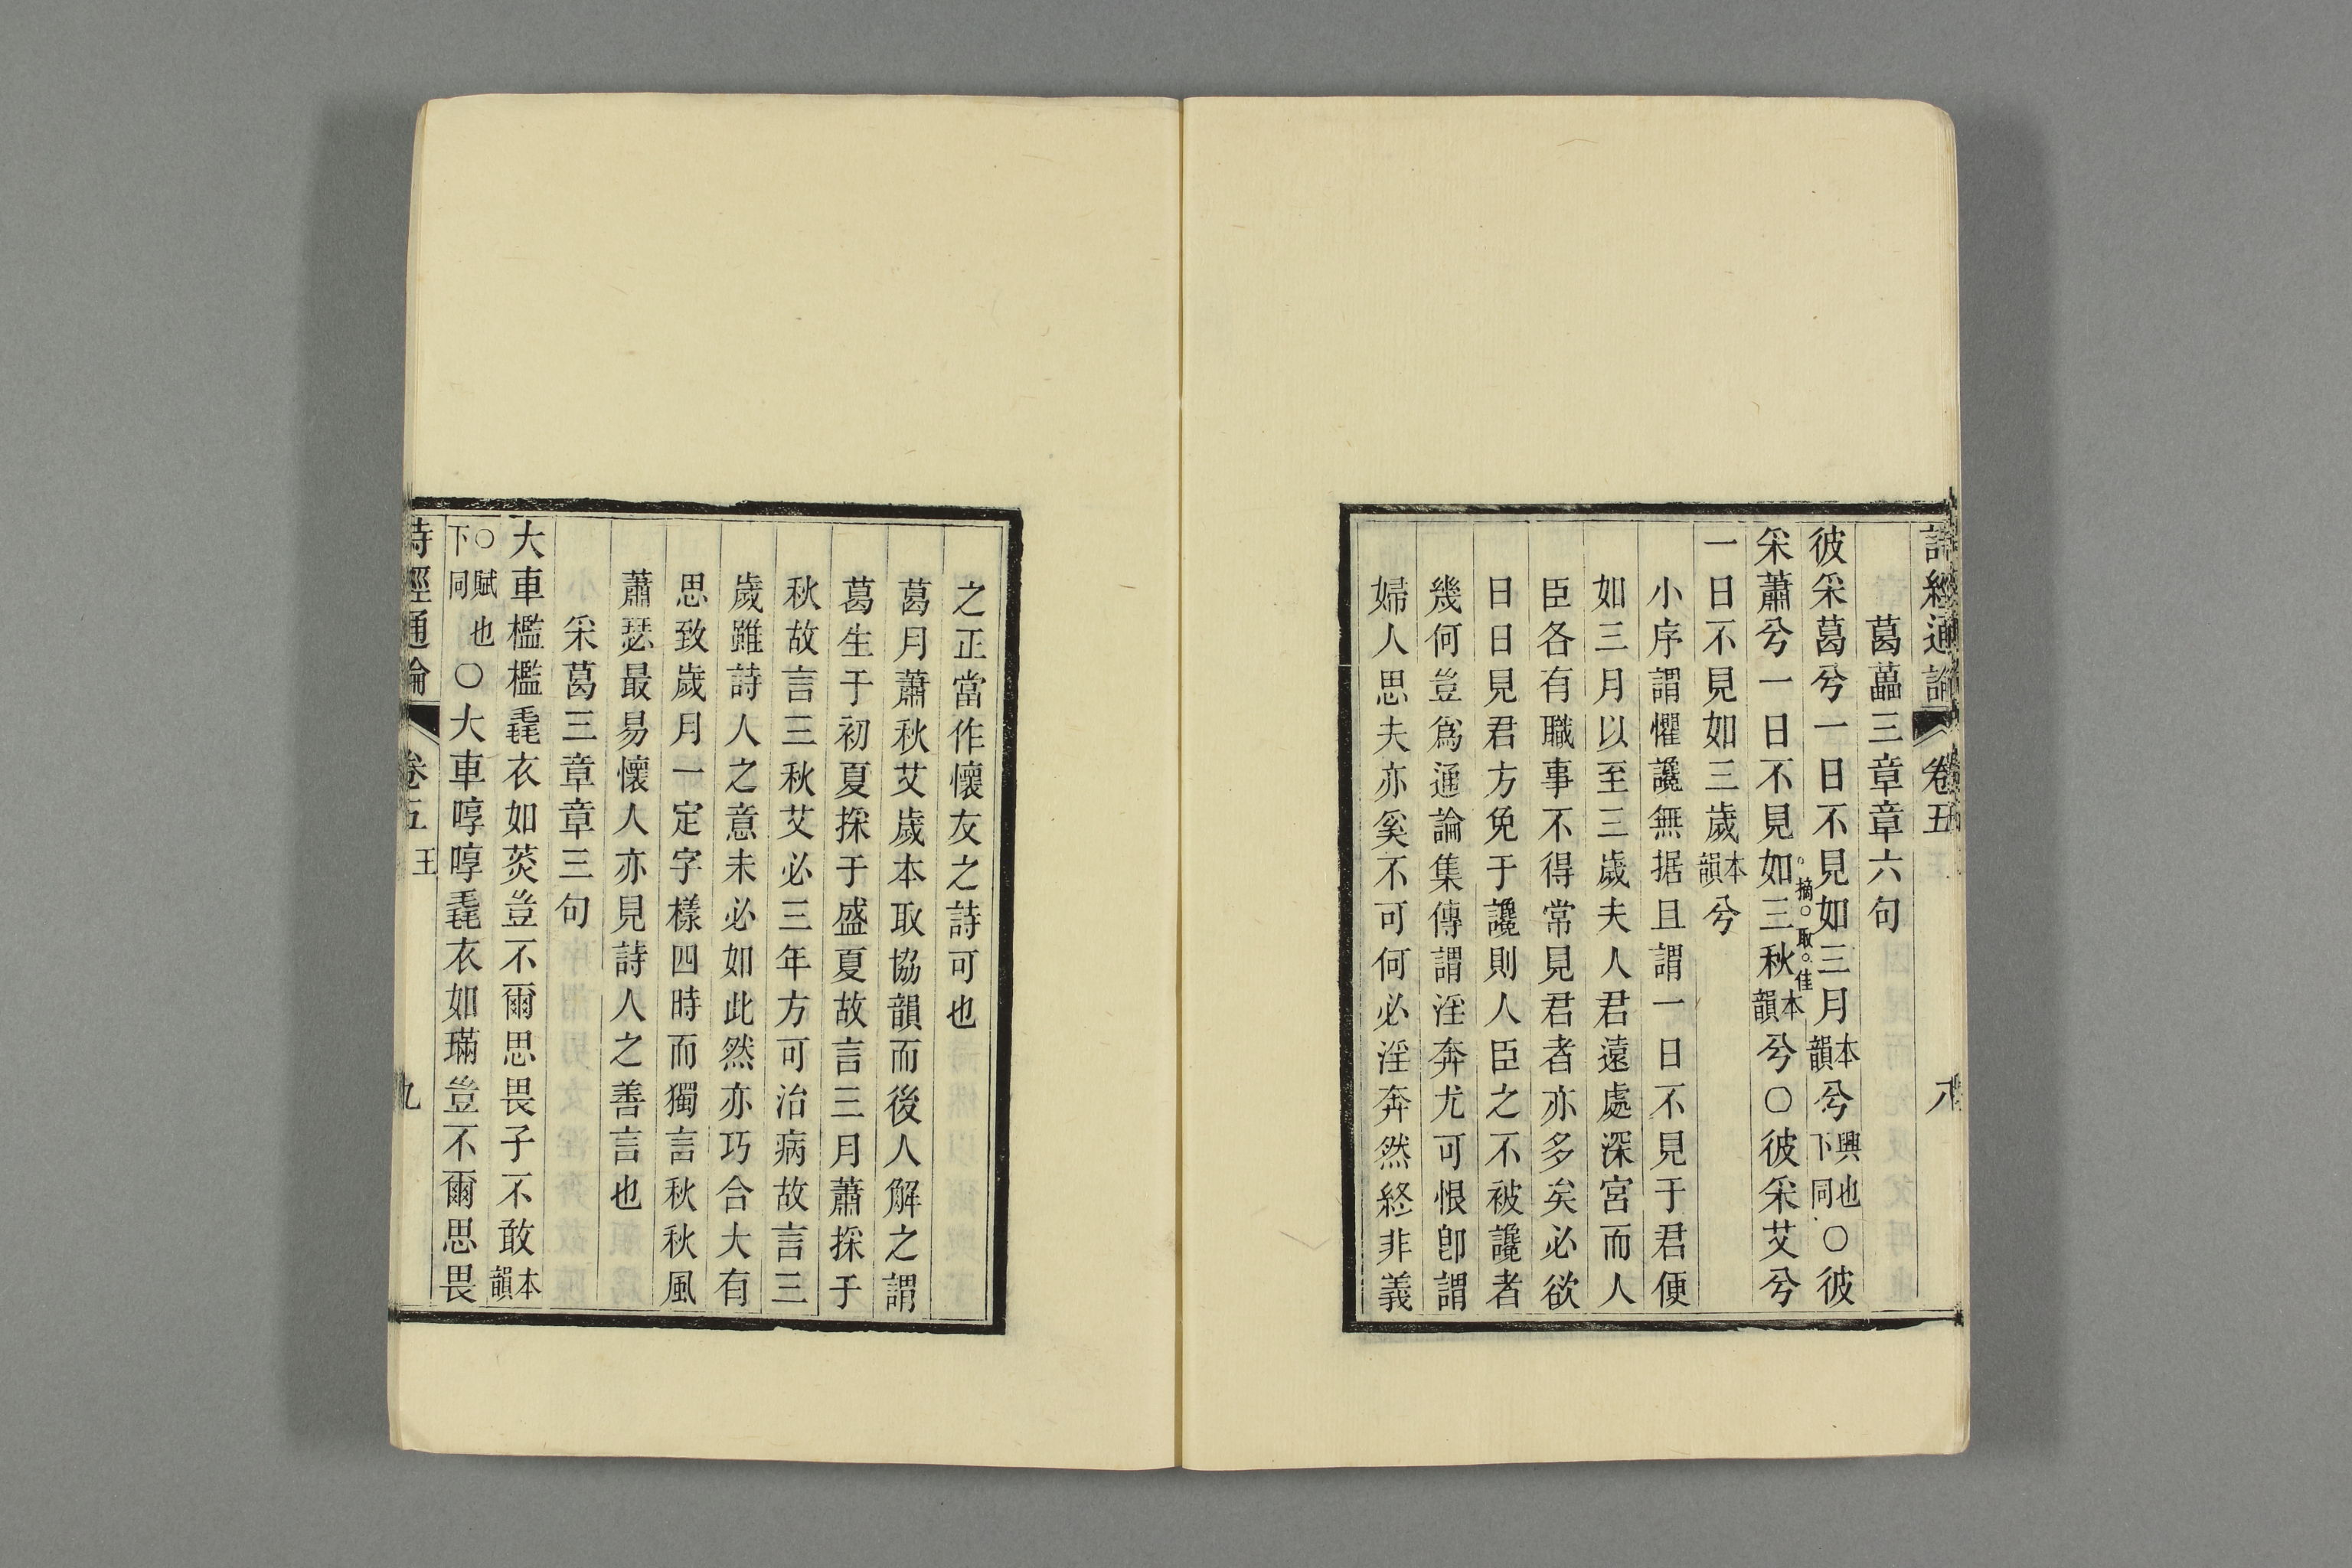 詩經通論 卷五 八
葛藟三章章六句
彼采葛兮一日不見如三月本韻兮興也下同○彼
摘取佳
采蕭兮一日不見如三秋本韻兮○彼采艾兮
一日不見如三歲本韻兮
小序謂懼讒無据且謂一日不見于君便
如三月以至三歲夫人君遠處深宮而人
臣各有職事不得常見君者亦多矣必欲
日日見君方免于讒則人臣之不被讒者
幾何豈爲通論集傳謂淫奔尤可恨卽謂
婦人思夫亦奚不可何必淫奔然終非義
之正當作懷友之詩可也
葛月蕭秋艾歲本取協韻而後人解之謂
葛生于初夏採于盛夏故言三月蕭採于
秋故言三秋艾必三年方可治病故言三
歲雖詩人之意未必如此然亦巧合大有
思致歲月一定字樣四時而獨言秋秋風
蕭瑟最易懷人亦見詩人之善言也
采葛三章章三句
大車檻檻毳衣如菼豈不爾思畏子不敢本韻
○賦也下同○大車啍啍毳衣如璊豈不爾思畏
詩經通論 卷五 王 九